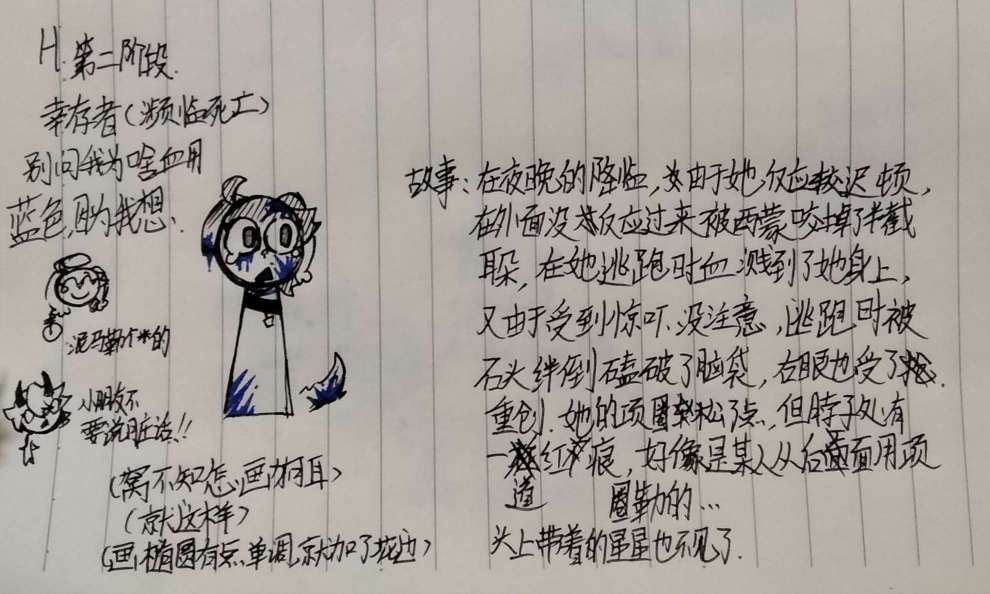 H.第二阶段.
幸存者(濒临死亡)
别问我为啥血用
蓝色,因为我想.
泥马勒个*的
小朋友不
要说脏话!!
(窝不知怎画狗耳)
(就这样)
(画椭圆有点单调,就加了花边)
故事:在夜晚的降临,由于她反应较迟顿,
在外面没反应过来被西蒙咬掉了半截
耳朵,在她逃跑时血溅到了她身上,
又由于受到惊吓没注意,逃跑时被
石头绊倒磕破了脑袋,右眼也受了
重创.她的项圈松了点,但脖子处有
一道红痕,好像是某人从后面用项
圈勒的...
头上带着的星星也不见了.